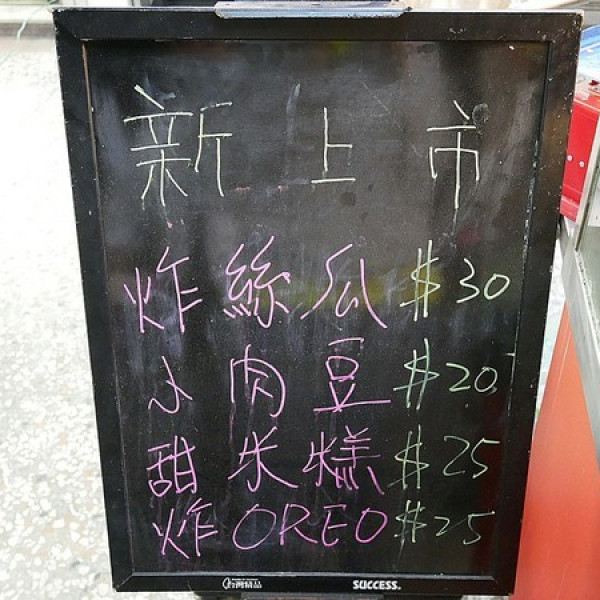 新上市
炸絲瓜 $30
小肉豆 $20
甜米糕 $25
炸OREO $25
SUCCESS.